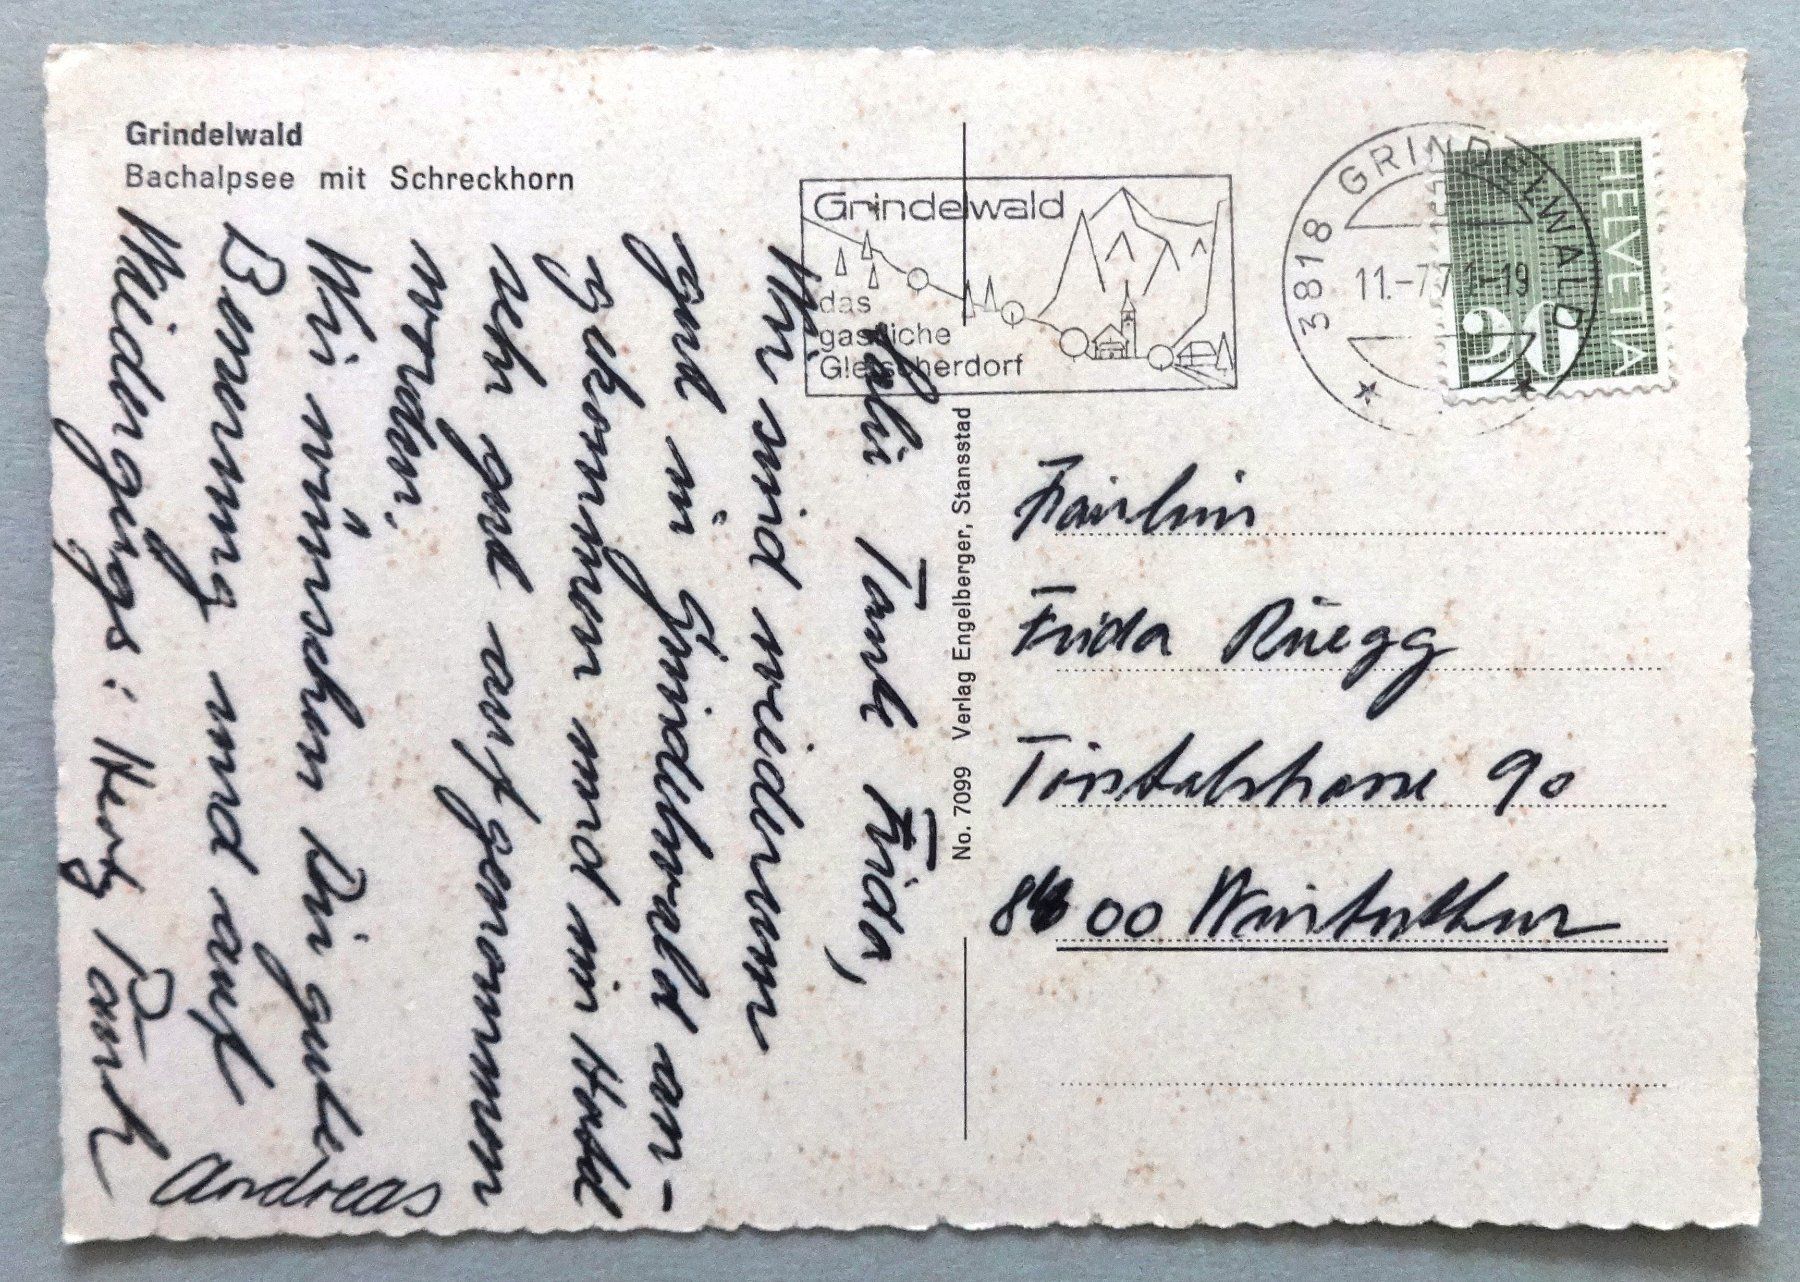 Grindelwald
Bachalpsee mit Schreckhorn
Grindelwald
das
gastliche
Gletscherdorf
3818 GRINDELWALD
11.-7.71-19
HELVETIA
20
Liebi Tante Frida,
Wir sind wiederum
gut in Grindelwald an-
gekommen und im Hotel
sehr gut aufgenommen
worden.
Wir wünschen Dir gute
Besserung und auf
Wiederluege:
Andreas
No. 7099 Verlag Engelberger, Stansstad
Fräulein
Frida Rüegg
Tösstalstrasse 90
8400 Winterthur